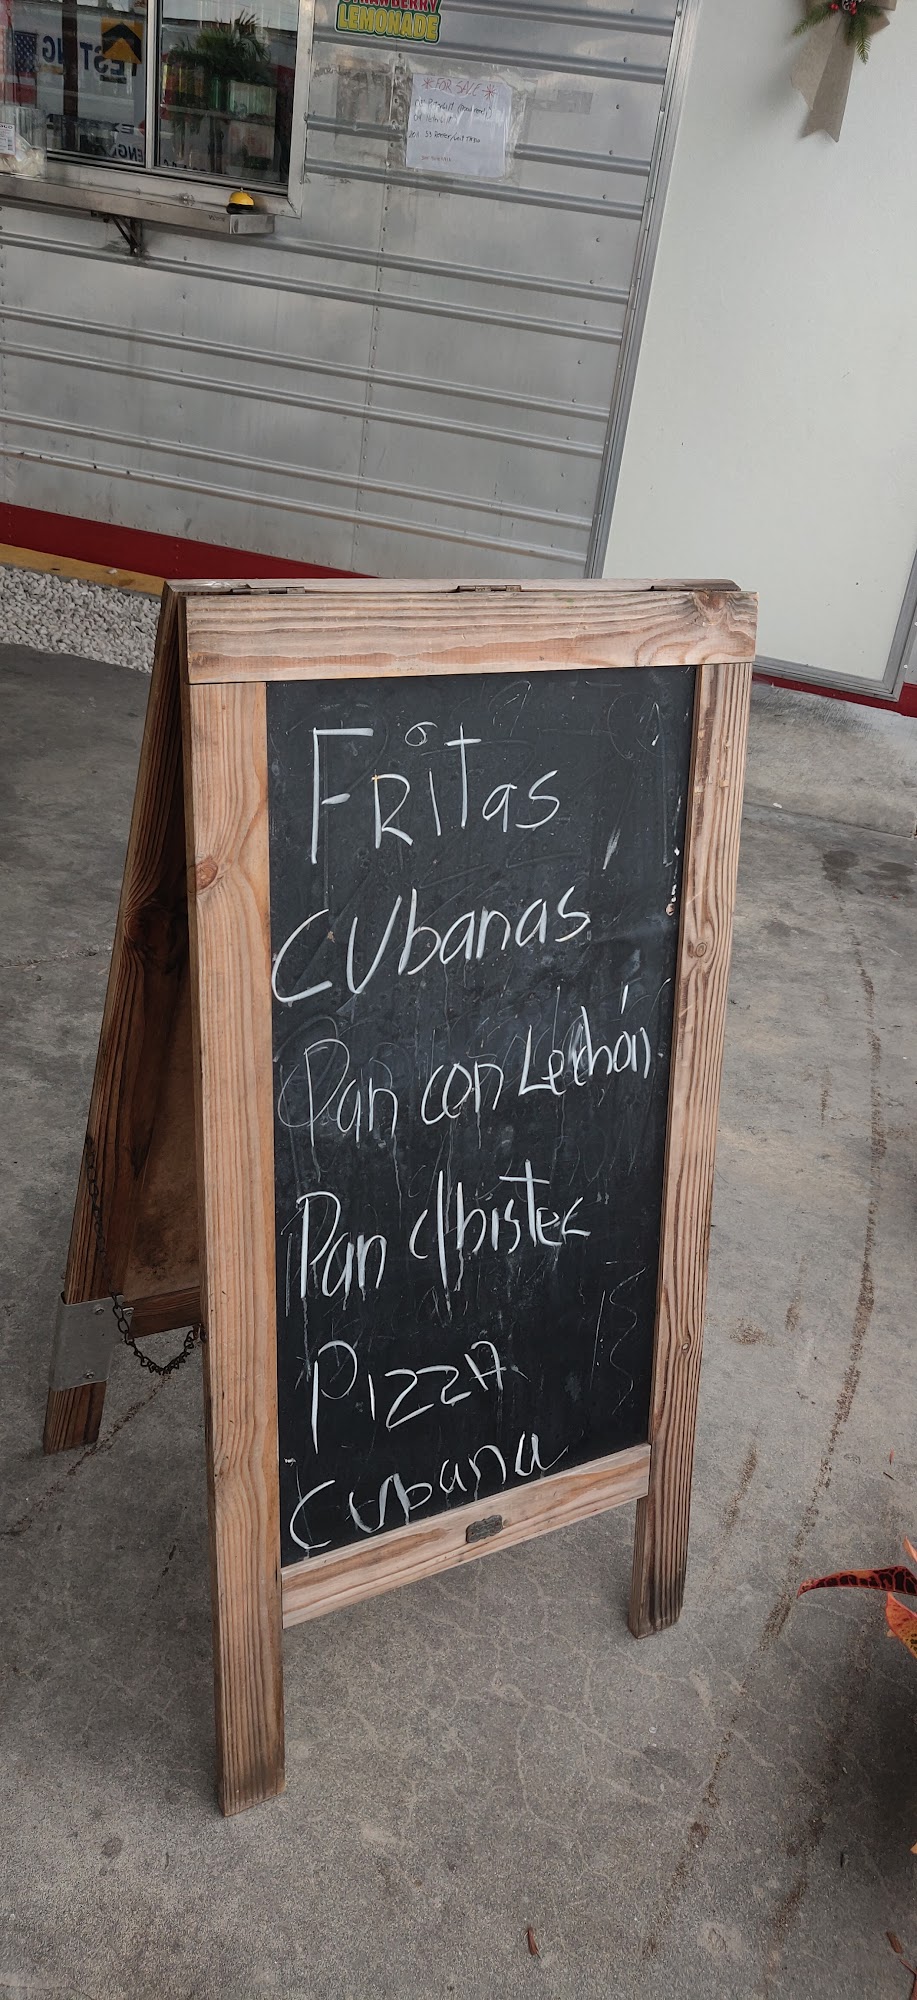 STRAWBERRY
LEMONADE
*FOR SALE*
TESTING
FRITas
CUbanas
Pan con Lechón
Pan c/bistec
PIZZA
cubana